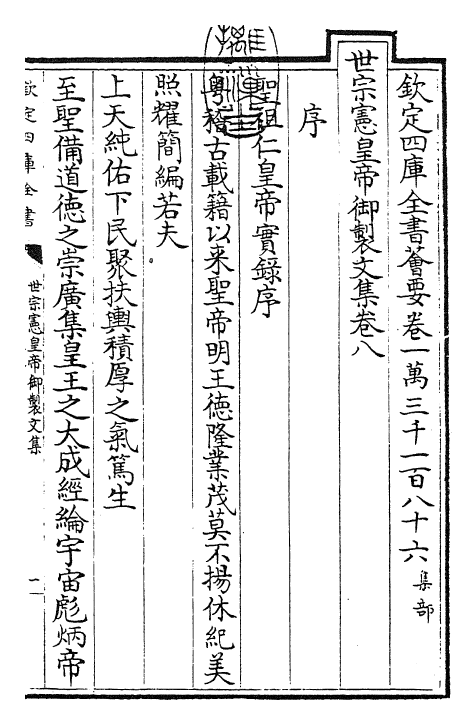 欽定四庫全書薈要卷一萬三千一百八十六 集部
世宗憲皇帝御製文集卷八
序
聖祖仁皇帝實錄序
粵稽古載籍以來聖帝明王德隆業茂莫不揚休紀美
照耀簡編若夫
上天純佑下民聚扶輿積厚之氣篤生
至聖備道德之崇廣集皇王之大成經綸宇宙彪炳帝
欽定四庫全書
世宗憲皇帝御製文集
一